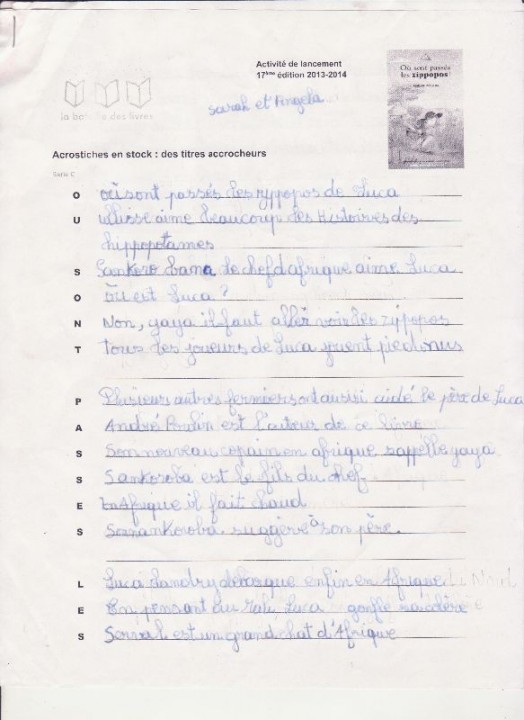 Activité de lancement
17ème édition 2013-2014
Où sont passés
les zippopos?
la bataille des livres
Sarah et Angela
Acrostiches en stock : des titres accrocheurs
Série C
O où sont passés les zypopos de Luca
U ullisse aime beaucoup des Histoires des
hippopotames
S Sankoro bama le chef d'afrique aime Luca
O Où est Luca?
N Non, yaya il faut aller voir les zypopos
T Tous les joueurs de Luca jouent pied nus
P Plusieurs autres fermiers ont aussi aidé le père de Luca
A André Poulin est l'auteur de ce livre
S Son nouveau copain en afrique s'appelle yaya
S Sankoroba est le fils du chef
E En Afrique il fait chaud
S Sanankoroba suggère à son père.
L Luca Landry débarque enfin en Afrique
E En pensant au Mali Luca gonfle sa colère
S Serval est un grand chat d'Afrique